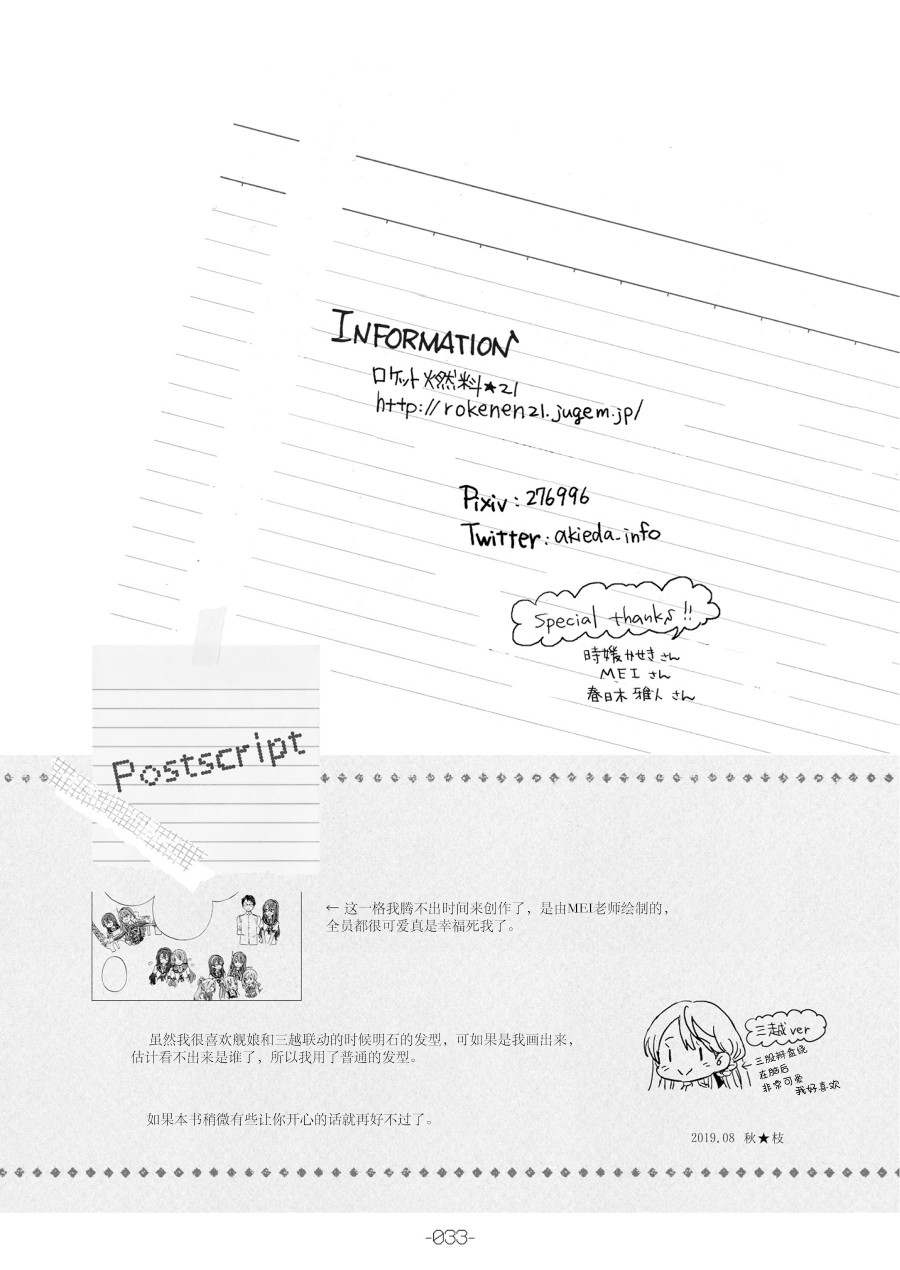 INFORMATION
ロケット燃料★21
http://rokenen21.jugem.jp/
Pixiv : 276996
Twitter : akieda_info
Special thanks!!
時媛かせきさん
MEI さん
春日木雅人さん
Postscript
← 这一格我腾不出时间来创作了，是由MEI老师绘制的，
全员都很可爱真是幸福死我了。
虽然我很喜欢舰娘和三越联动的时候明石的发型，可如果是我画出来，
估计看不出来是谁了，所以我用了普通的发型。
三越ver
←三股辫盘绕
在脑后
非常可爱
我好喜欢
如果本书稍微有些让你开心的话就再好不过了。
2019.08 秋★枝
-033-